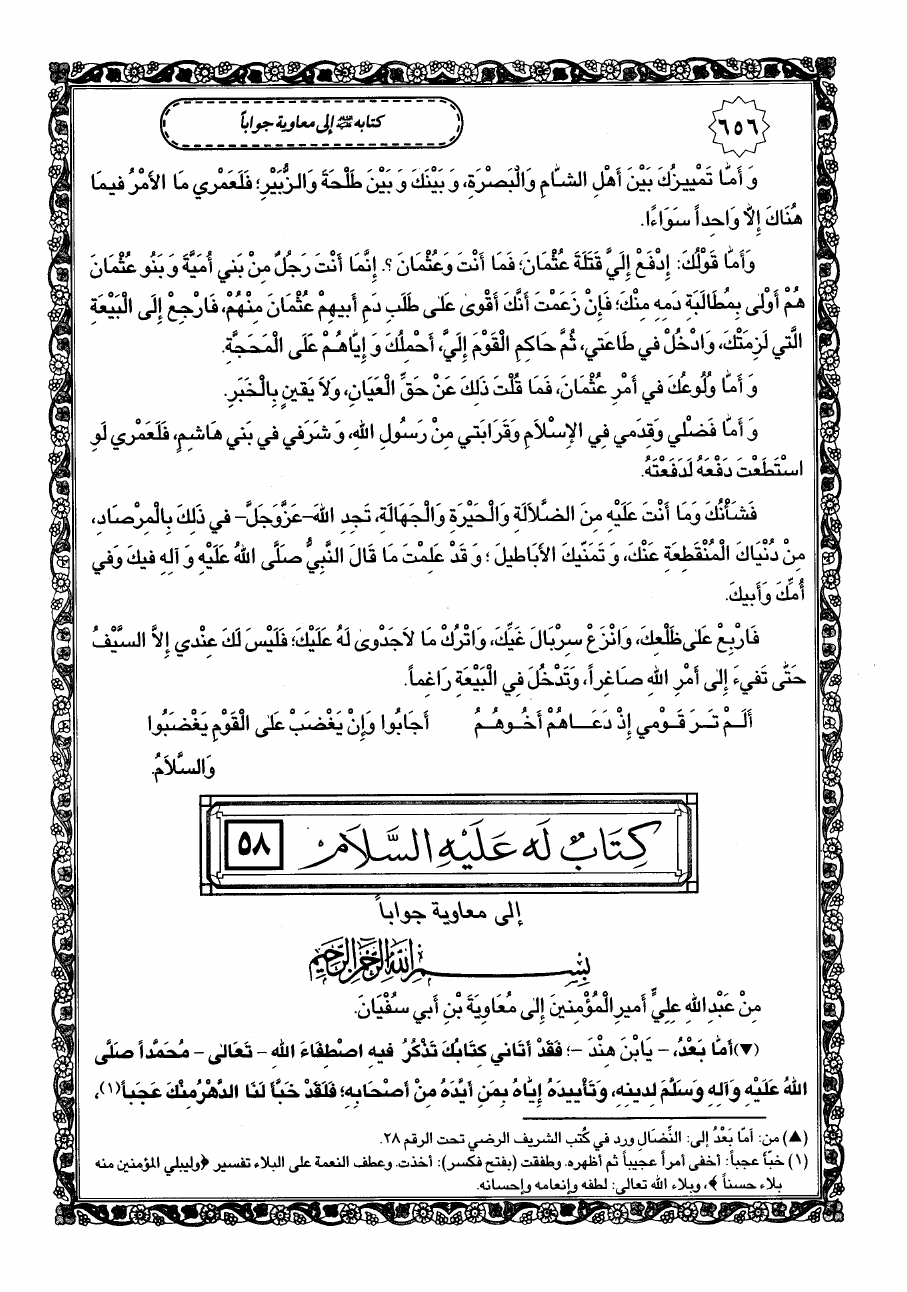 ٦٥٦
كتابه عليه السلام إلى معاوية جواباً
وَ أَمَّا تَمْييزُكَ بَيْنَ أَهْلِ الشَّامِ وَالْبَصْرَةِ، وَ بَيْنَكَ وَ بَيْنَ طَلْحَةَ وَالزُّبَيْرِ؛ فَلَعَمْري مَا الأَمْرُ فيمَا
هُنَاكَ إِلاَّ وَاحِداً سَوَاءًا.
وَأَمَّا قَوْلُكَ: إِدْفَعْ إِلَيَّ قَتَلَةَ عُثْمَانَ؛ فَمَا أَنْتَ وَعُثْمَانَ ؟. إِنَّمَا أَنْتَ رَجُلٌ مِنْ بَني أُمَيَّةَ وَ بَنُو عُثْمَانَ
هُمْ أَوْلى بِمُطَالَبَةِ دَمِهِ مِنْكَ؛ فَإِنْ زَعَمْتَ أَنَّكَ أَقْوى عَلى طَلَبِ دَمِ أَبيهِمْ عُثْمَانَ مِنْهُمْ، فَارْجِعْ إِلَى الْبَيْعَةِ
الَّتي لَزِمَتْكَ، وَادْخُلْ في طَاعَتي، ثُمَّ حَاكِمِ الْقَوْمَ إِلَيَّ، أَحْمِلْكَ وَ إِيَّاهُمْ عَلَى الْمَحَجَّةِ.
وَ أَمَّا وُلُوعُكَ في أَمْرِ عُثْمَانَ، فَمَا قُلْتَ ذَلِكَ عَنْ حَقِّ الْعَيَانِ، وَلاَ يَقينٍ بِالْخَبَرِ.
وَ أَمَّا فَضْلي وَقِدَمي فِي الإِسْلاَمِ وَقَرَابَتي مِنْ رَسُولِ اللهِ، وَ شَرَفي في بَني هَاشِمٍ، فَلَعَمْري لَوِ
اسْتَطَعْتَ دَفْعَهُ لَدَفَعْتَهُ.
فَشَأْنُكَ وَمَا أَنْتَ عَلَيْهِ مِنَ الضَّلاَلَةِ وَالْحَيْرَةِ وَالْجَهَالَةِ، تَجِدِ اللهَ–عَزَّوَجَلَّ– في ذَلِكَ بِالْمِرْصَادِ،
مِنْ دُنْيَاكَ الْمُنْقَطِعَةِ عَنْكَ، وَ تَمَنّيكَ الأَبَاطيلَ ؛ وَ قَدْ عَلِمْتَ مَا قَالَ النَّبِيُّ صَلَّى اللهُ عَلَيْهِ وَ آلِهِ فيكَ وَفي
أُمِّكَ وَ أَبيكَ.
فَارْبِعْ عَلى ظَلْعِكَ، وَانْزَعْ سِرْبَالَ غَيِّكَ، وَاتْرُكْ مَا لاَجَدْوى لَهُ عَلَيْكَ؛ فَلَيْسَ لَكَ عِنْدي إِلاَّ السَّيْفُ
حَتَّى تَفيءَ إِلى أَمْرِ اللهِ صَاغِراً، وَتَدْخُلَ فِي الْبَيْعَةِ رَاغِماً.
أَلَـمْ تَـرَ قَـوْمي إِذْ دَعَـاهُمْ أَخُوهُـمُ أَجَابُوا وَإِنْ يَغْضَبْ عَلَى الْقَوْمِ يَغْضَبُوا
وَالسَّلاَمُ.
كِتَابٌ لَه عَلَيْهِ السَّلاَم ٥٨
إلى معاوية جواباً
بِسْمِ اللهِ الرَّحْمنِ الرَّحيمِ
مِنْ عَبْدِ اللهِ عَلِيٍّ أَميرِ الْمُؤْمِنينَ إِلى مُعَاوِيَةَ بْنِ أَبي سُفْيَانَ.
(▼) أَمَّا بَعْدُ، – يَابْنَ هِنْدَ –؛ فَقَدْ أَتَاني كِتَابُكَ تَذْكُرُ فيهِ اصْطِفَاءَ اللهِ – تَعَالى – مُحَمَّداً صَلَّى
اللهُ عَلَيْهِ وَآلِهِ وَسَلَّمَ لِدينِهِ، وَتَأْييدَهُ إِيَّاهُ بِمَنِ أَيَّدَهُ مِنْ أَصْحَابِهِ؛ فَلَقَدْ خَبَّأَ لَنَا الدَّهْرُ مِنْكَ عَجَباً(١)،
(▲) من: أمّا بَعْدُ إلى: النِّضَالِ ورد في كُتب الشريف الرضي تحت الرقم ٢٨.
(١) خبّأ عجباً: أخفى أمراً عجيباً ثم أظهره. وطفقت (بفتح فكسر): أخذت. وعطف النعمة على البلاء تفسير ﴿وليبلي المؤمنين منه
بلاء حسناً ﴾، وبلاء الله تعالى: لطفه وإنعامه وإحسانه.